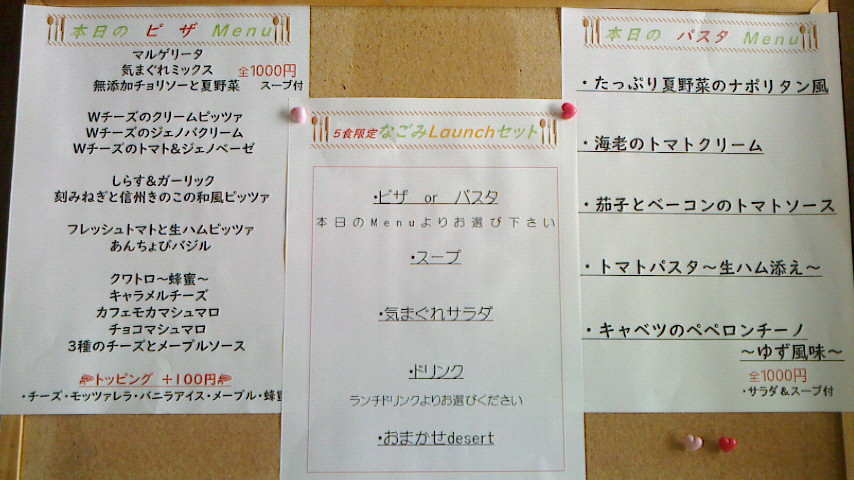 本日の ピ ザ Menu
マルゲリータ
気まぐれミックス 全1000円
無添加チョリソーと夏野菜 スープ付
Wチーズのクリームピッツァ
Wチーズのジェノバクリーム
Wチーズのトマト&ジェノベーゼ
しらす&ガーリック
刻みねぎと信州きのこの和風ピッツァ
フレッシュトマトと生ハムピッツァ
あんちょびバジル
クワトロ～蜂蜜～
キャラメルチーズ
カフェモカマシュマロ
チョコマシュマロ
3種のチーズとメープルソース
トッピング +100円
・チーズ・モッツァレラ・バニラアイス・メープル・蜂蜜
5食限定なごみLaunchセット
・ピザ or パスタ
本日のMenuよりお選び下さい
・スープ
・気まぐれサラダ
・ドリンク
ランチドリンクよりお選びください
・おまかせdesert
本日の パスタ Menu
・たっぷり夏野菜のナポリタン風
・海老のトマトクリーム
・茄子とベーコンのトマトソース
・トマトパスタ～生ハム添え～
・キャベツのペペロンチーノ
～ゆず風味～
全1000円
・サラダ&スープ付